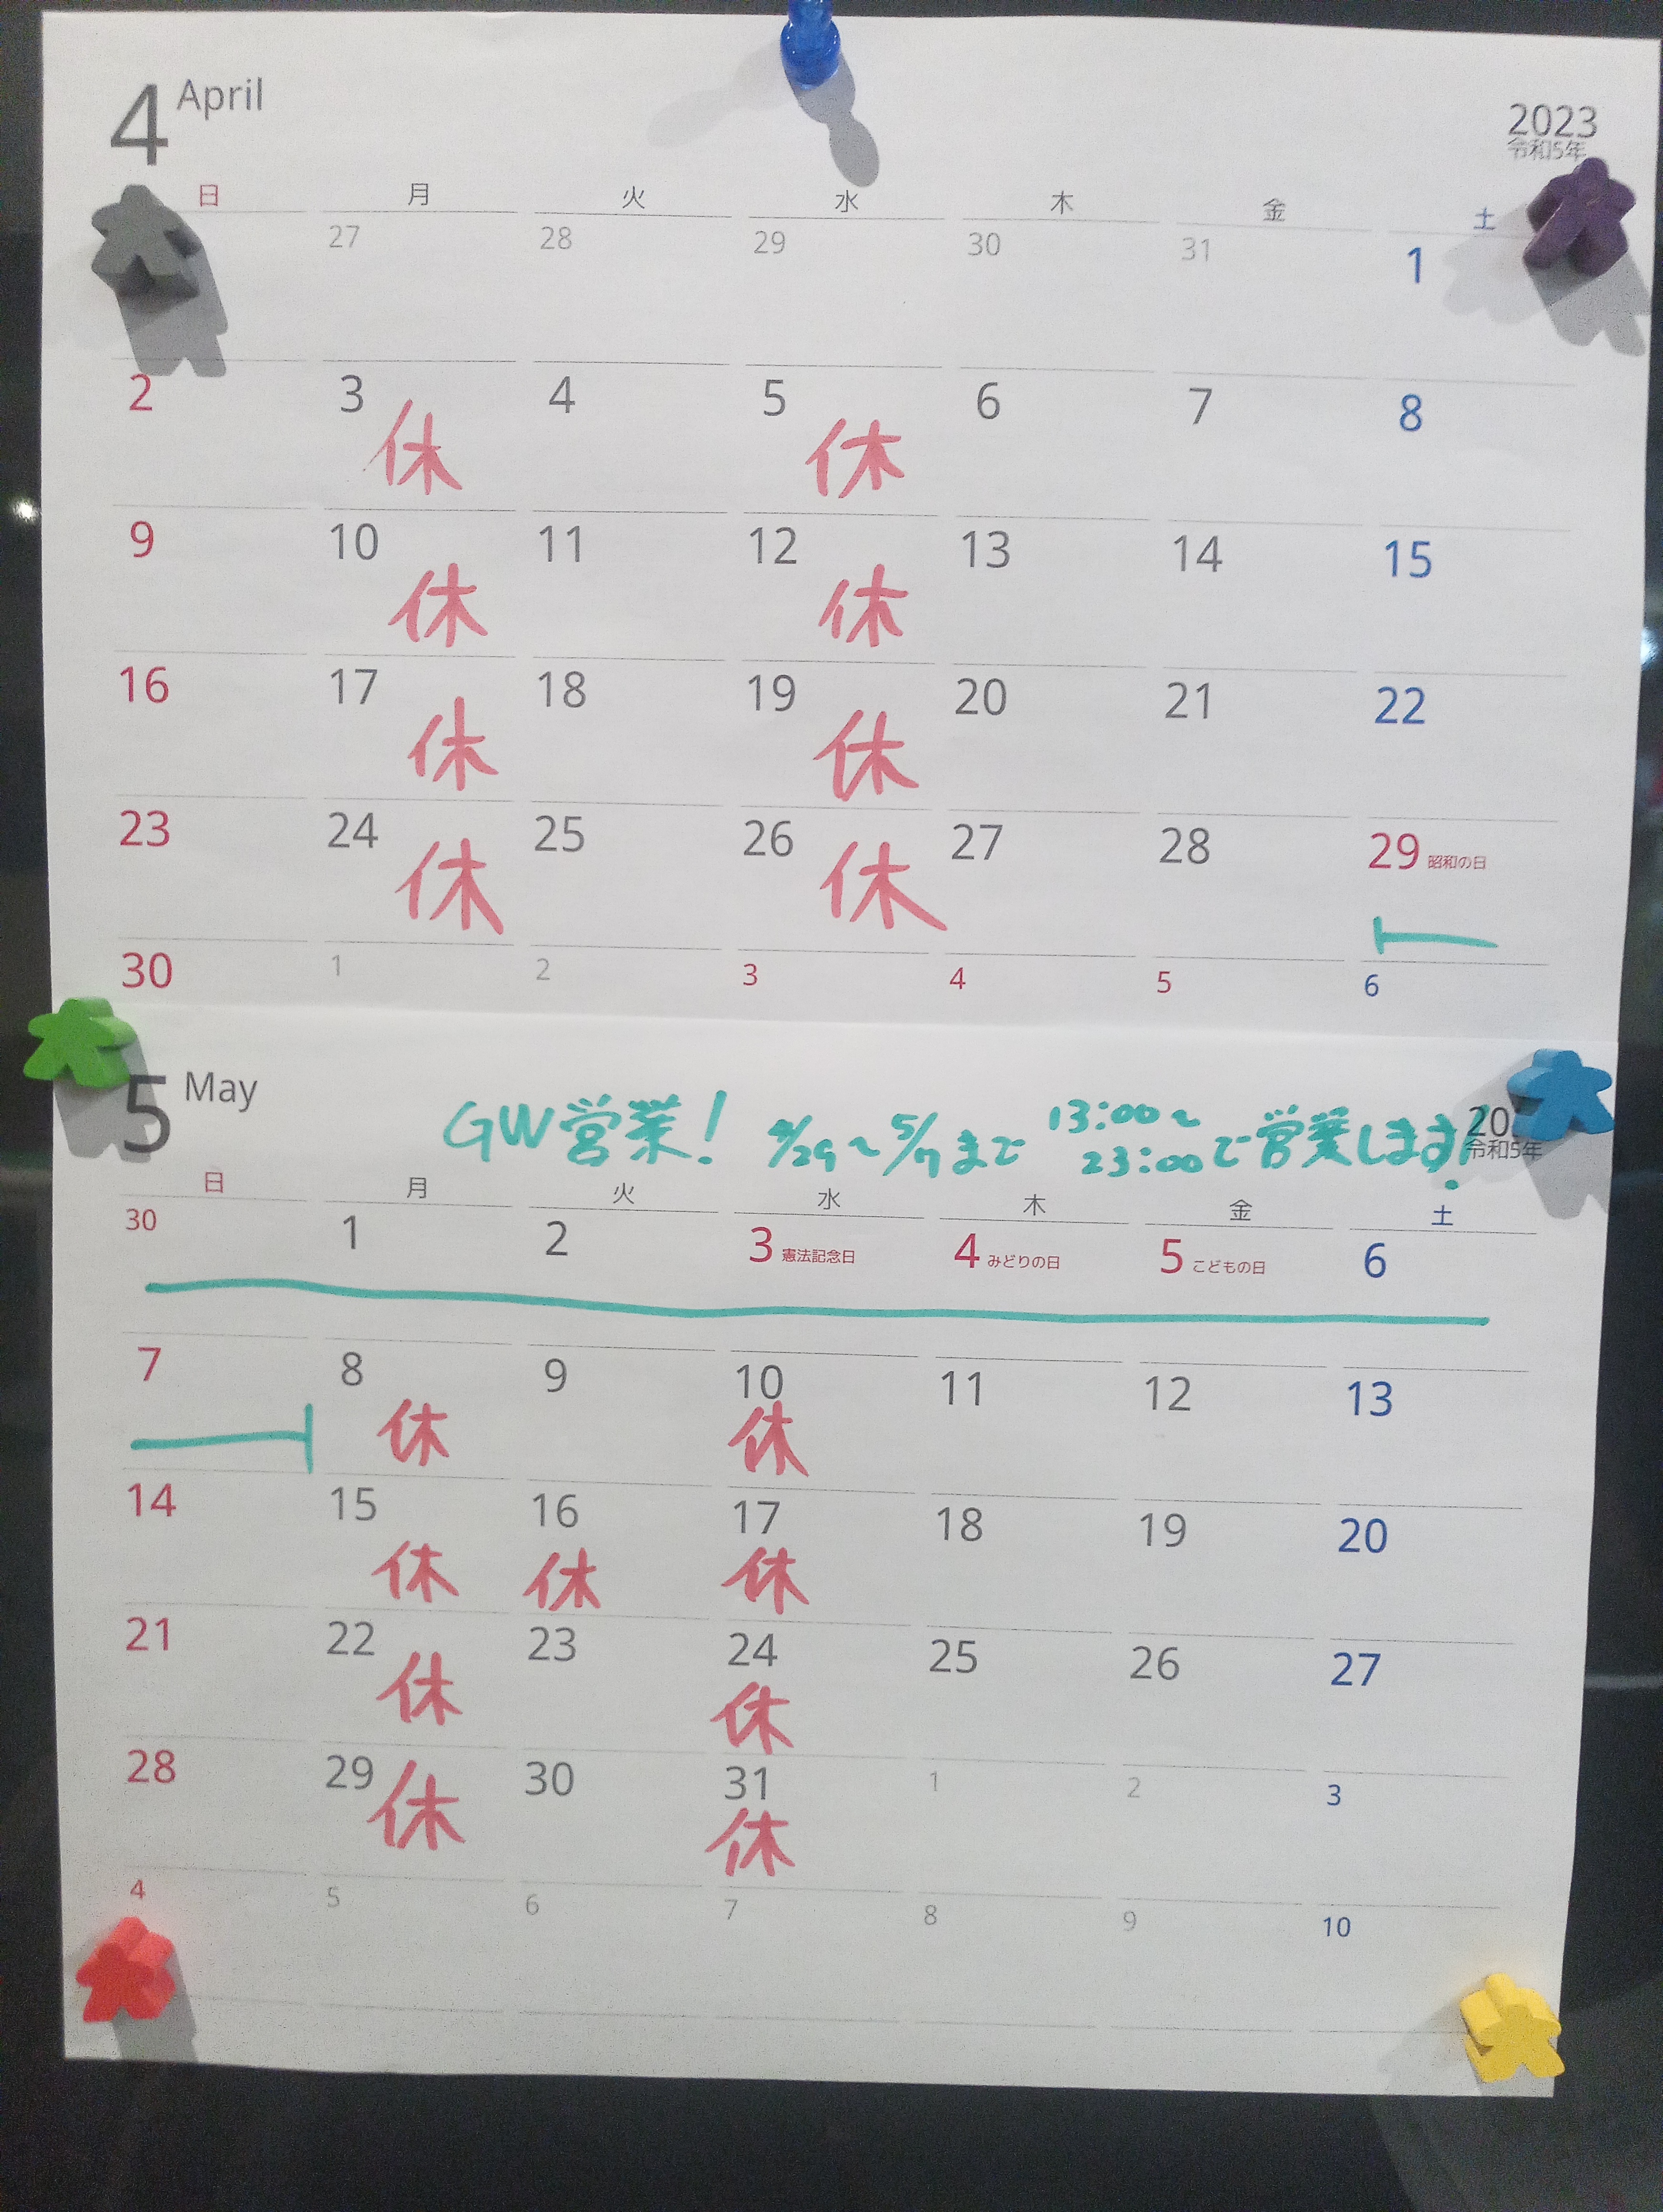 4 April
2023
令和5年
日 月 火 水 木 金 土
27 28 29 30 31 1
2 3 4 5 6 7 8
休 休
9 10 11 12 13 14 15
休 休
16 17 18 19 20 21 22
休 休
23 24 25 26 27 28 29 昭和の日
休 休
30 1 2 3 4 5 6
5 May
GW営業! 4/29〜5/7まで 13:00〜23:00で営業します!
令和5年
日 月 火 水 木 金 土
30 1 2 3 憲法記念日 4 みどりの日 5 こどもの日 6
7 8 9 10 11 12 13
休 休
14 15 16 17 18 19 20
休 休 休
21 22 23 24 25 26 27
休 休
28 29 30 31 1 2 3
休 休
4 5 6 7 8 9 10